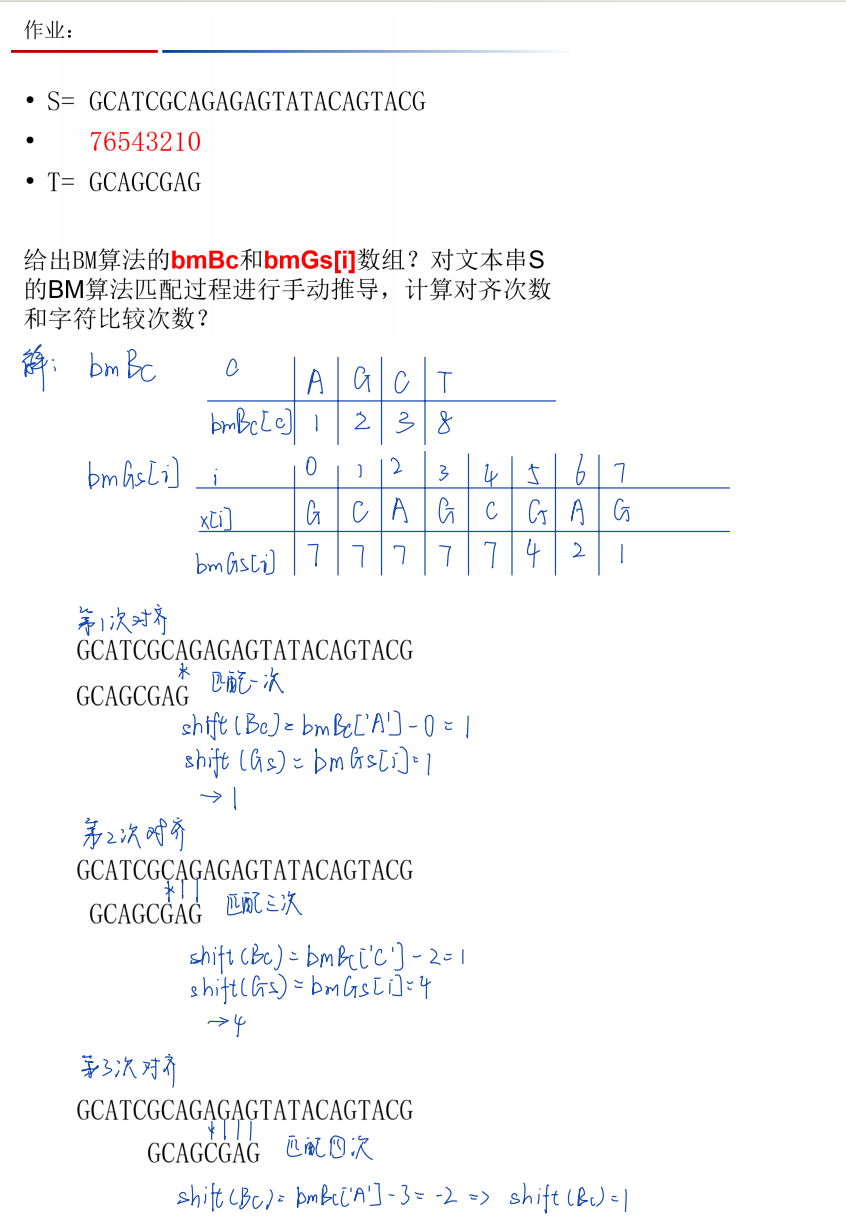 作业：
• S= GCATCGCAGAGAGTATACAGTACG
• 76543210
• T= GCAGCGAG
给出BM算法的bmBc和bmGs[i]数组？对文本串S
的BM算法匹配过程进行手动推导，计算对齐次数
和字符比较次数？
解： bmBc c A G C T
bmBc[c] 1 2 3 8
bmGs[i] i 0 1 2 3 4 5 6 7
x[i] G C A G C G A G
bmGs[i] 7 7 7 7 7 4 2 1
第1次对齐
GCATCGCAGAGAGTATACAGTACG
* 匹配一次
GCAGCGAG
shift(Bc)=bmBc['A']-0=1
shift(Gs)=bmGs[i]=1
→1
第2次对齐
GCATCGCAGAGAGTATACAGTACG
*||
GCAGCGAG 匹配三次
shift(Bc)=bmBc['C']-2=1
shift(Gs)=bmGs[i]=4
→4
第3次对齐
GCATCGCAGAGAGTATACAGTACG
*|||
GCAGCGAG 匹配四次
shift(Bc)=bmBc['A']-3=-2 => shift(Bc)=1